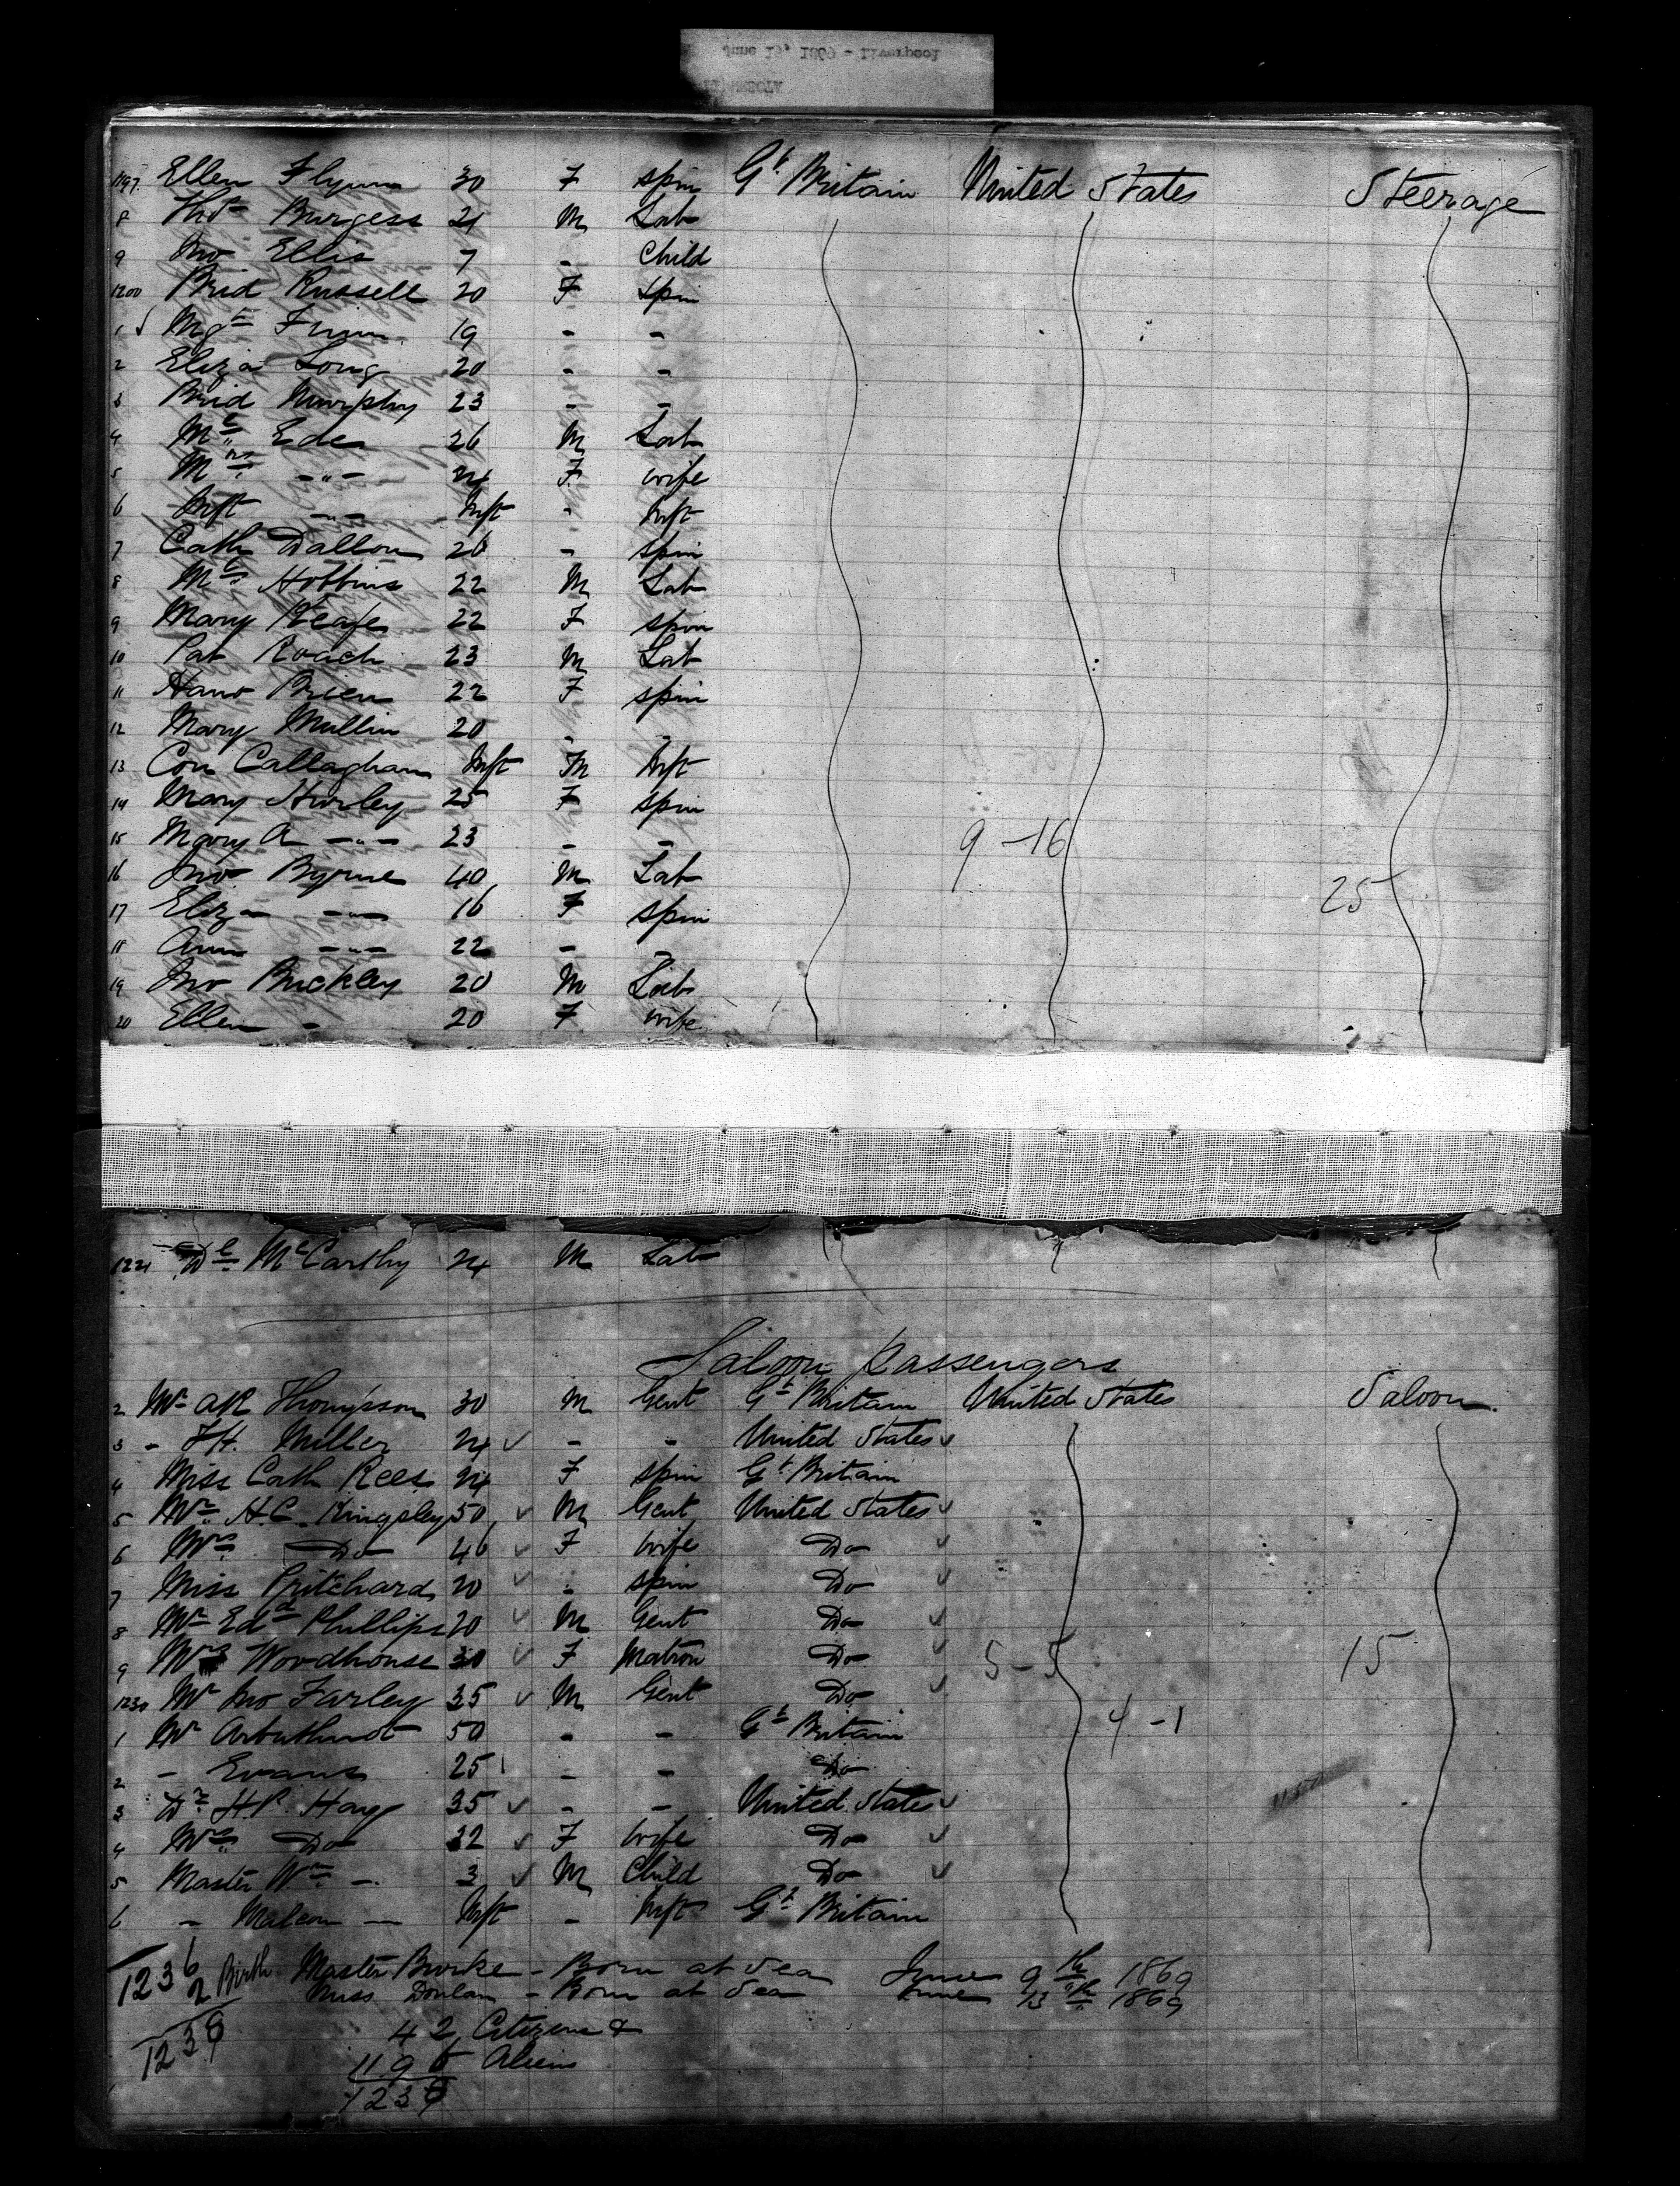 June 19, 1869 - Liverpool
1197. Ellen Flynn 30 F spin Gt Britain United States Steerage
8 Thos Burgess 21 M Lab
9 Jno Ellis 7 - Child
1200 Brid Russell 20 F spin
1 Mgt 19 - -
2 Eliza Long 20 - -
3 Brid Murphy 23 - -
4 Ml Ede 26 M Lab
5 Mrs -"- 24 F wife
6 Inft -"- Inft - Inft
7 Cath Dallon 26 - spin
8 Ml Hobbins 22 M Lab
9 Mary Keafe 22 F spin
10 Pat Roach 23 M Lab
11 Hano Brien 22 F spin
12 Mary Mullin 20 - -
13 Con Callaghan Inft M Inft
14 Mary Hurley 25 F spin
15 Mary A -"- 23 - - 9-16
16 Jno Byrne 40 M Lab 25
17 Eliza -"- 16 F spin
18 Ann -"- 22 - -
19 Jno Buckley 20 M Lab
20 Ellen - 20 F wife
1221 Dl McCarthy 24 M Lab
Saloon Passengers
2 Mr AR Thompson 30 M Gent Gt Britain United States Saloon
3 - F.H. Miller 24 - - United States
4 Miss Cath Rees 24 F spin Gt Britain
5 Mr H.C. Kingsley 50 M Gent United States
6 Mrs Do 46 F wife Do
7 Miss Pritchard 20 " spin Do
8 Mr Edd Phillips 20 M Gent Do
9 Mrs Woodhouse 30 F Matron Do 5-5 15
1230 Mr Jno Farley 35 M Gent Do
1 Mr Arbuthnot 50 - - Gt Britain 4-1
2 - Evans 25 - - Do
3 Dr H.P. Hays 35 - - United States
4 Mrs Do 32 F wife Do
5 Master Wm - 3 M Child Do
6 - Malcom - Inft - Inft Gt Britain
1236
2 Birth Master Burke - Born at Sea June 9th 1869
Miss Donlan - Born at Sea June 13th 1869
1238
42 Citizens &
1196 Aliens
1238